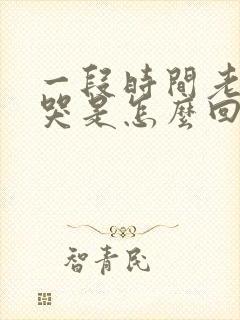 一段時間老
哭是怎麼回
智青民